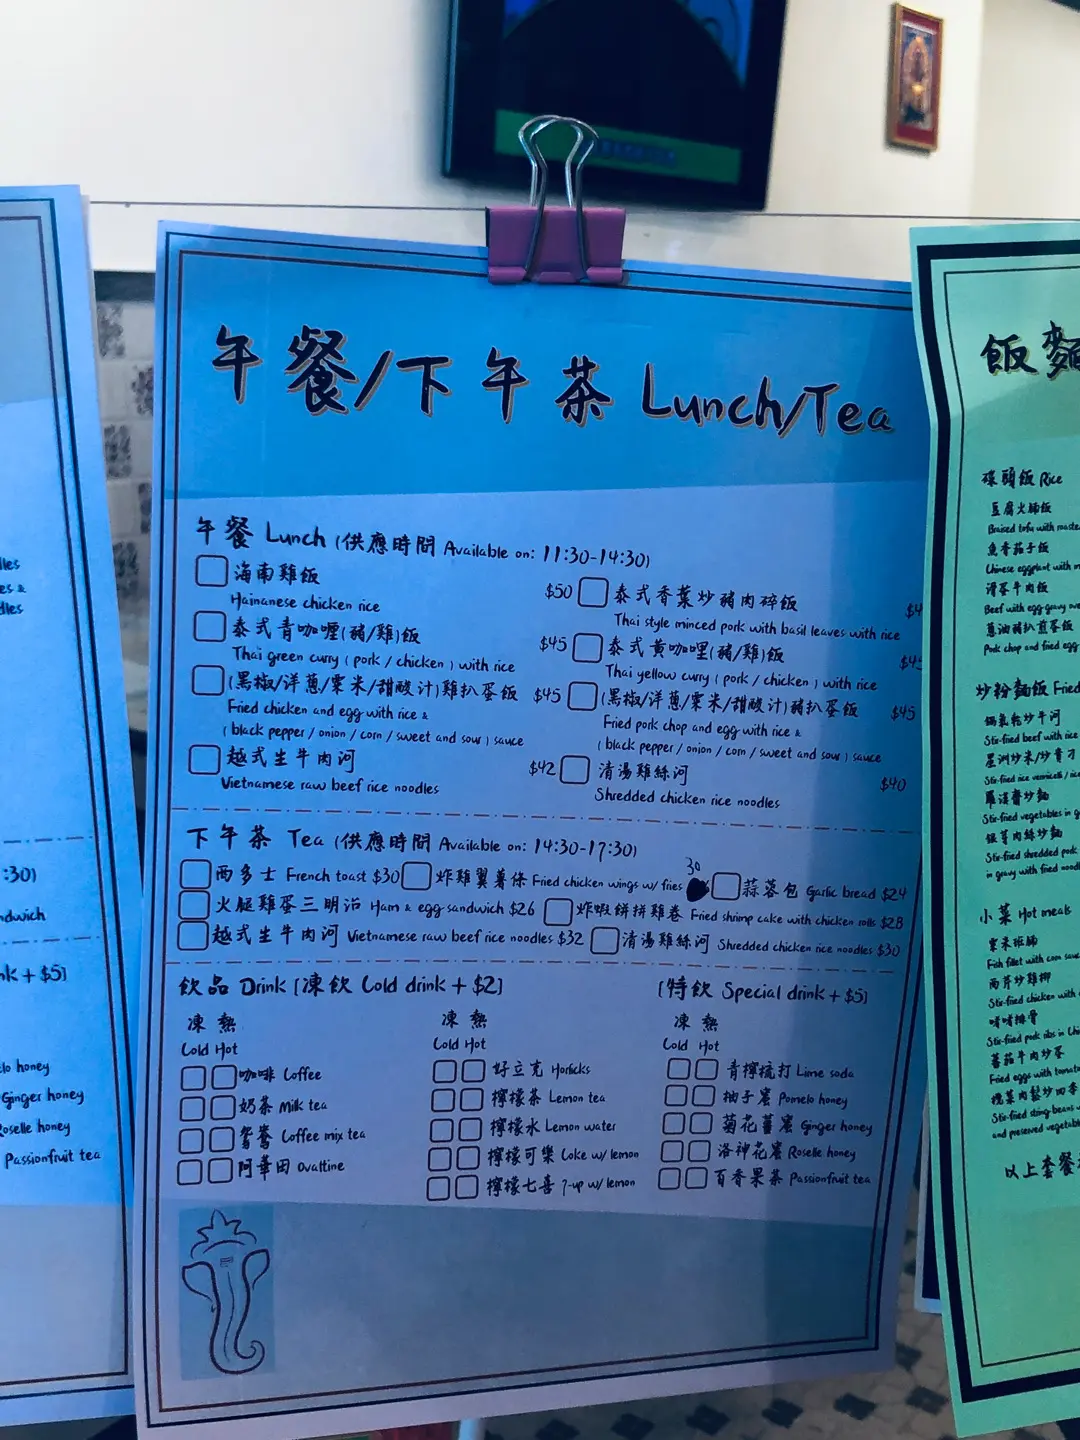 午餐/下午茶 Lunch/Tea
午餐 Lunch (供應時間 Available on: 11:30-14:30)
海南雞飯 $50
Hainanese chicken rice
泰式香葉炒豬肉碎飯
Thai style minced pork with basil leaves with rice
泰式青咖喱(豬/雞)飯 $45
Thai green curry (pork / chicken) with rice
泰式黃咖哩(豬/雞)飯 $45
Thai yellow curry (pork / chicken) with rice
(黑椒/洋蔥/粟米/甜酸汁)雞扒蛋飯 $45
Fried chicken and egg with rice &
(black pepper / onion / corn / sweet and sour) sauce
(黑椒/洋蔥/粟米/甜酸汁)豬扒蛋飯 $45
Fried pork chop and egg with rice &
(black pepper / onion / corn / sweet and sour) sauce
越式生牛肉河 $42
Vietnamese raw beef rice noodles
清湯雞絲河 $40
Shredded chicken rice noodles
下午茶 Tea (供應時間 Available on: 14:30-17:30)
西多士 French toast $30 炸雞翼薯條 Fried chicken wings w/ fries 30 蒜蓉包 Garlic bread $24
火腿雞蛋三明治 Ham & egg sandwich $26 炸蝦餅拼雞卷 Fried shrimp cake with chicken rolls $28
越式生牛肉河 Vietnamese raw beef rice noodles $32 清湯雞絲河 Shredded chicken rice noodles $30
飲品 Drink [凍飲 Cold drink + $2] [特飲 Special drink + $5]
凍 熱
Cold Hot
咖啡 Coffee
奶茶 Milk tea
鴛鴦 Coffee mix tea
阿華田 Ovaltine
凍 熱
Cold Hot
好立克 Horlicks
檸檬茶 Lemon tea
檸檬水 Lemon water
檸檬可樂 Coke w/ lemon
檸檬七喜 7-up w/ lemon
凍 熱
Cold Hot
青檸梳打 Lime soda
柚子蜜 Pomelo honey
菊花薑蜜 Ginger honey
洛神花蜜 Roselle honey
百香果茶 Passionfruit tea
:30)
ndwich
nk + $5]
lo honey
Ginger honey
Roselle honey
Passionfruit tea
飯麵
碟頭飯 Rice
豆腐火腩飯
Braised tofu with roaste
魚香茄子飯
Chinese eggplant with m
滑蛋牛肉飯
Beef with egg gravy ove
蔥油豬扒煎蛋飯
Pork chop and fried egg
炒粉麵飯 Fried
Stir-fried beef with rice
星洲炒米/炒貴刁
Stir-fried rice vermicelli / rice
羅漢齋炒麵
Stir-fried vegetables in g
銀芽肉絲炒麵
Stir-fried shredded pork
in gravy with fried noodles
小菜 Hot meals
粟米斑腩
Fish fillet with corn sauc
西芹炒雞柳
Stir-fried chicken with
啫啫排骨
Stir-fried pork ribs in Chi
蕃茄牛肉炒蛋
Fried eggs with tomato
欖菜肉鬆炒四季
Stir-fried string beans w
and preserved vegetabl
以上套餐